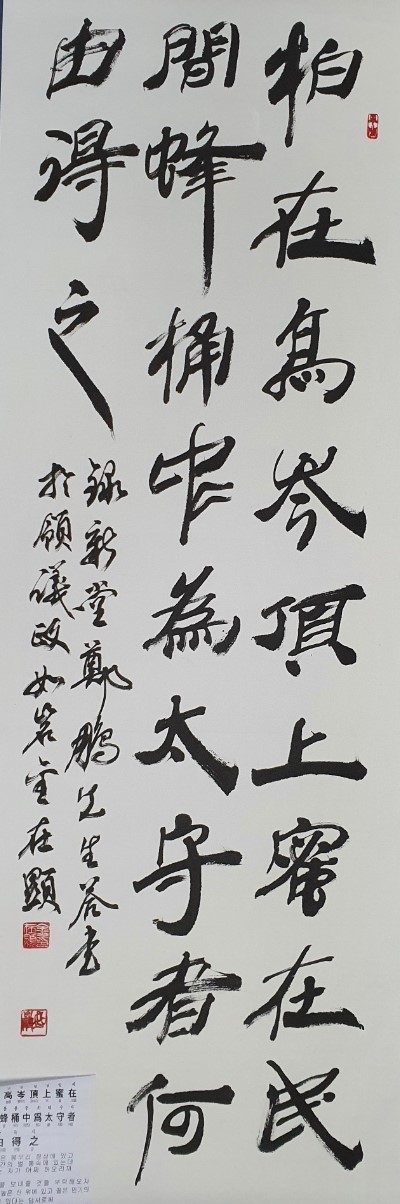 柏在高岑頂上蜜在民
間蜂桶中為太守者何
由得之
錄新堂鄭鵬先生答書
於領議政如岩金在顯
高岑頂上蜜在
蜂桶中爲太守者
由得之